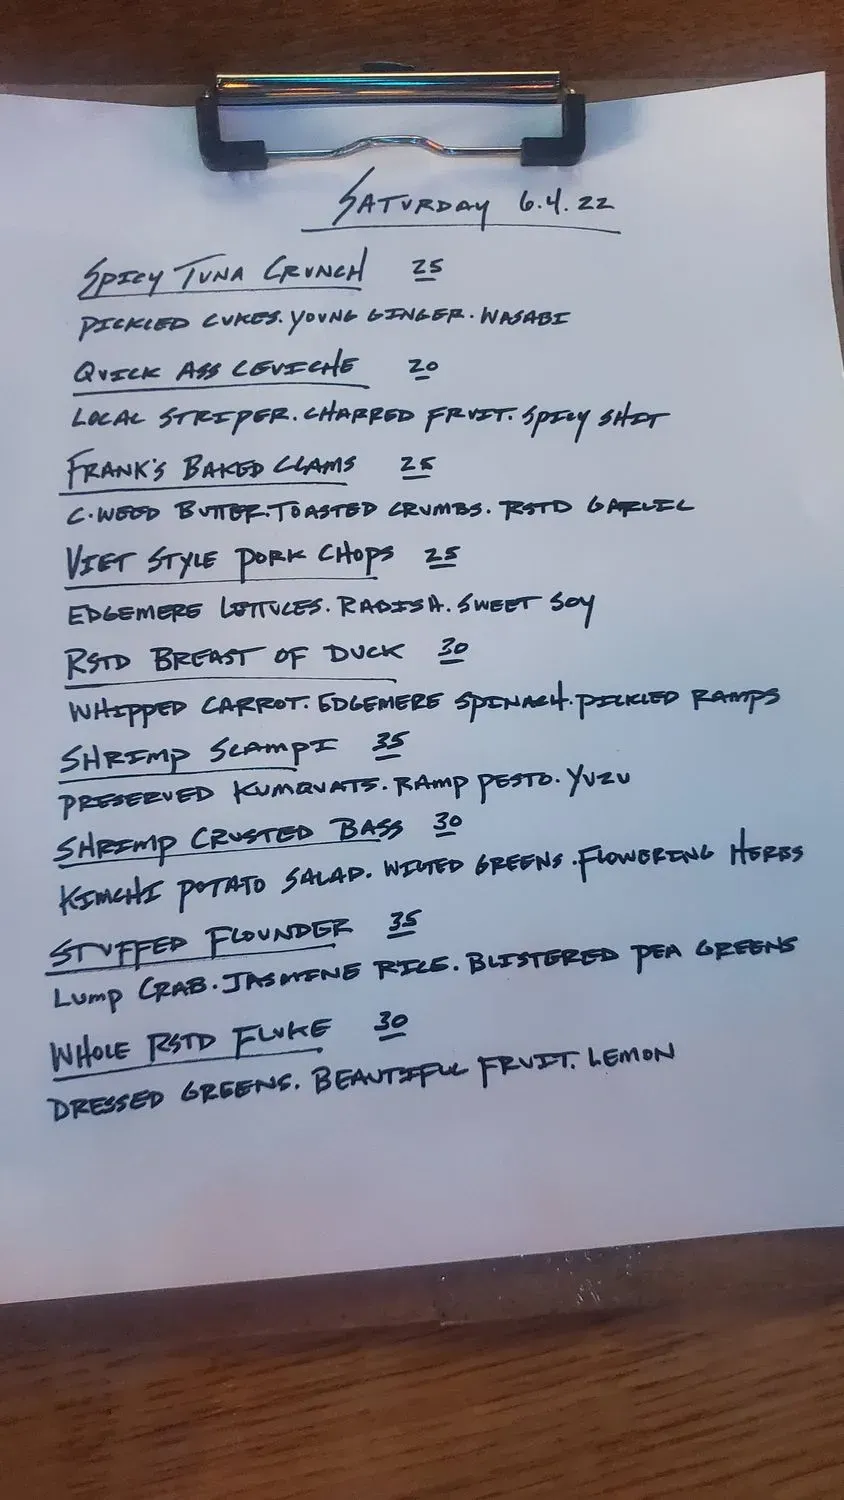 SATURDAY 6.4.22
SPICY TUNA CRUNCH 25
PICKLED CUKES. YOUNG GINGER. WASABI
QUICK ASS CEVICHE 20
LOCAL STRIPER. CHARRED FRUIT. SPICY SHIT
FRANK'S BAKED CLAMS 25
C.WEED BUTTER. TOASTED CRUMBS. RSTD GARLIC
VIET STYLE PORK CHOPS 25
EDGEMERE LETTUCES. RADISH. SWEET SOY
RSTD BREAST OF DUCK 30
WHIPPED CARROT. EDGEMERE SPINACH. PICKLED RAMPS
SHRIMP SCAMPI 35
PRESERVED KUMQUATS. RAMP PESTO. YUZU
SHRIMP CRUSTED BASS 30
KIMCHI POTATO SALAD. WILTED GREENS. FLOWERING HERBS
STUFFED FLOUNDER 35
LUMP CRAB. JASMINE RICE. BLISTERED PEA GREENS
WHOLE RSTD FLUKE 30
DRESSED GREENS. BEAUTIFUL FRUIT. LEMON